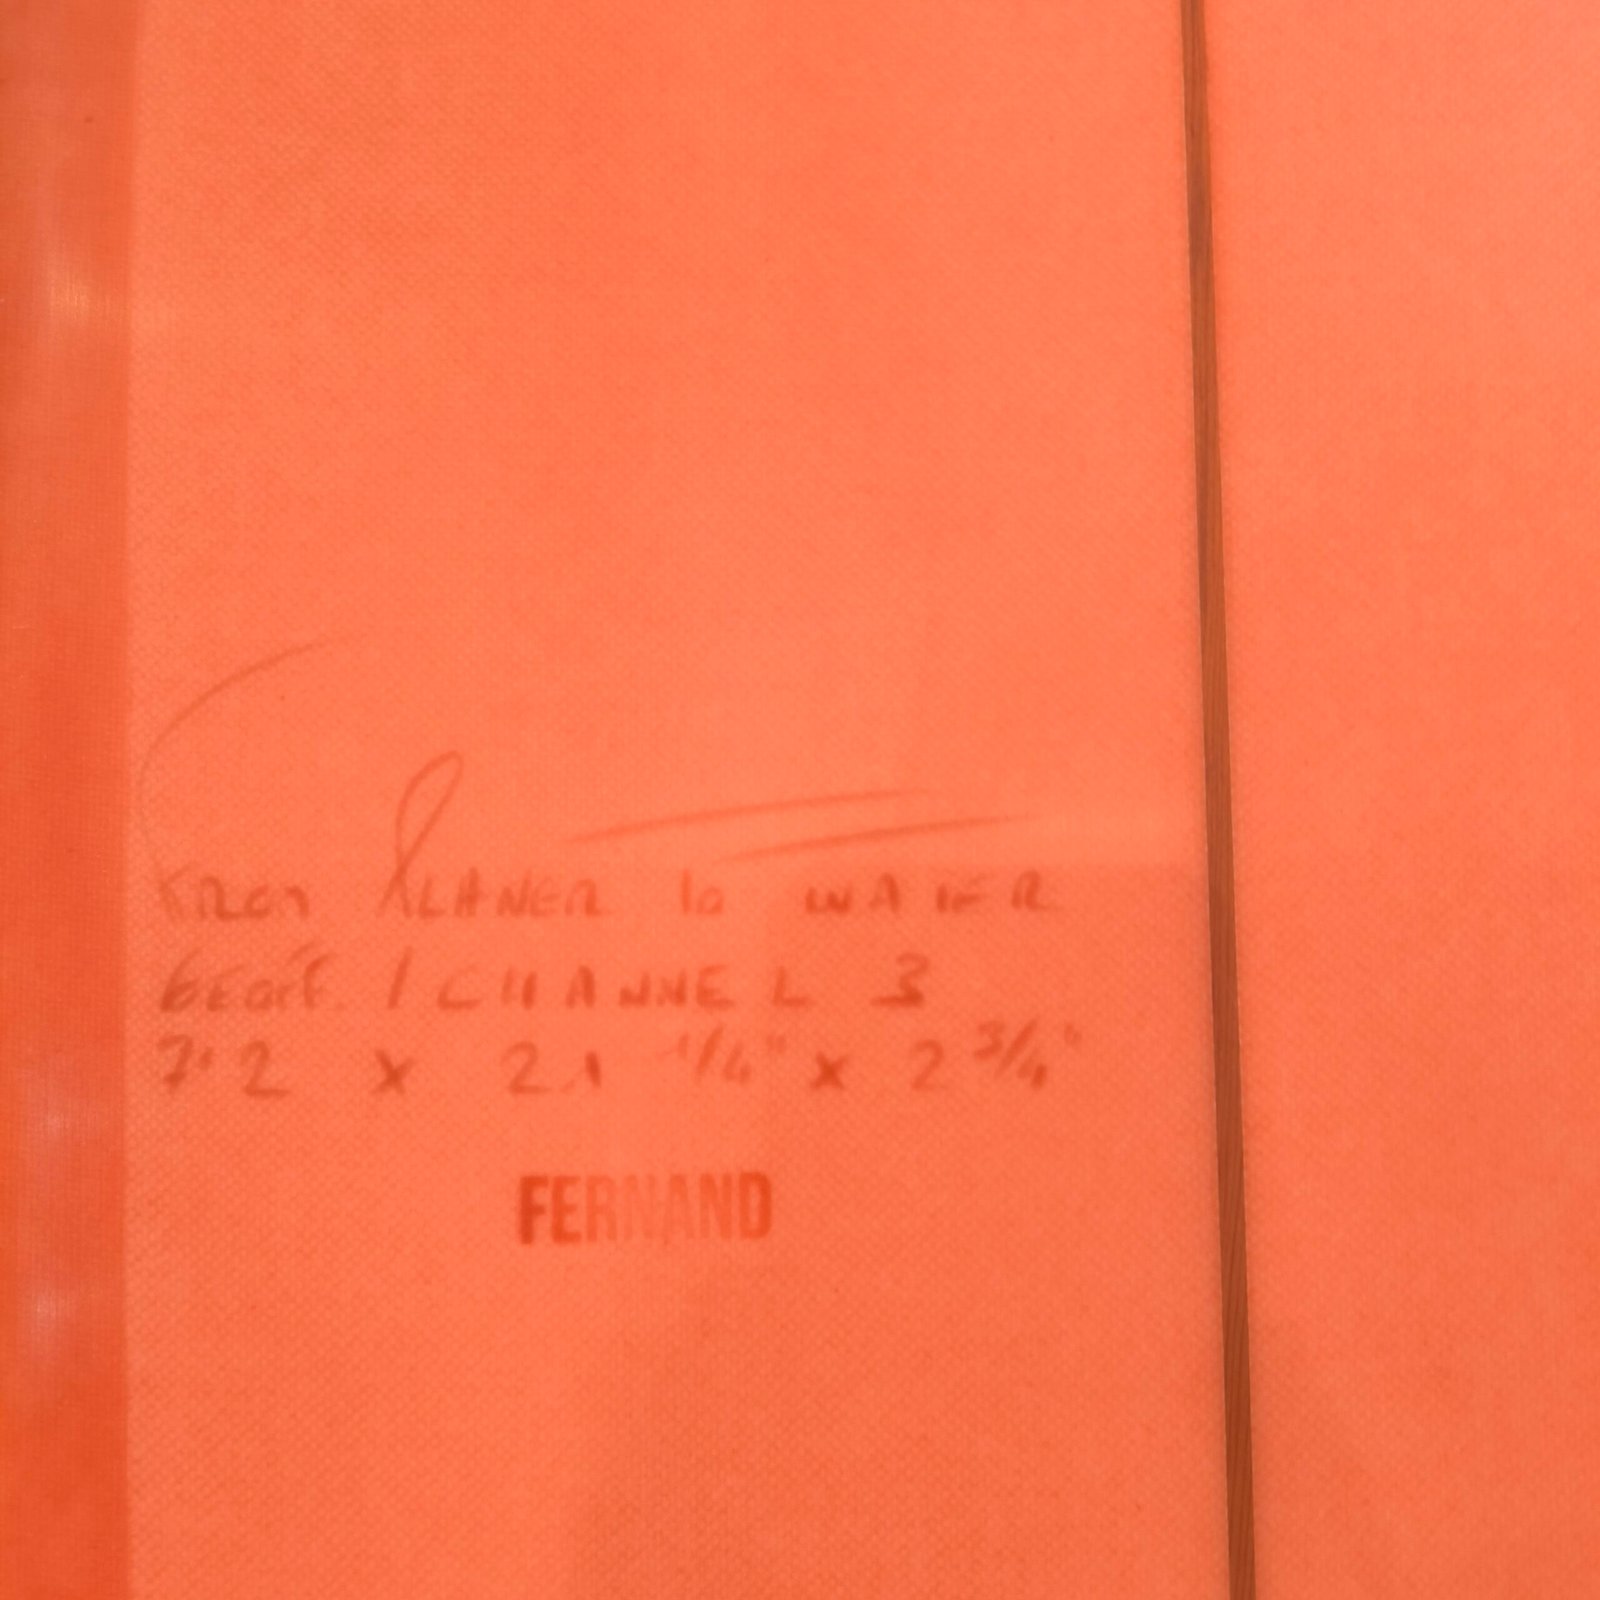 FROM PLANER to WATER
GEOFF. / CHANNEL 3
7'2 x 21 1/4" x 2 3/4"
FERNAND